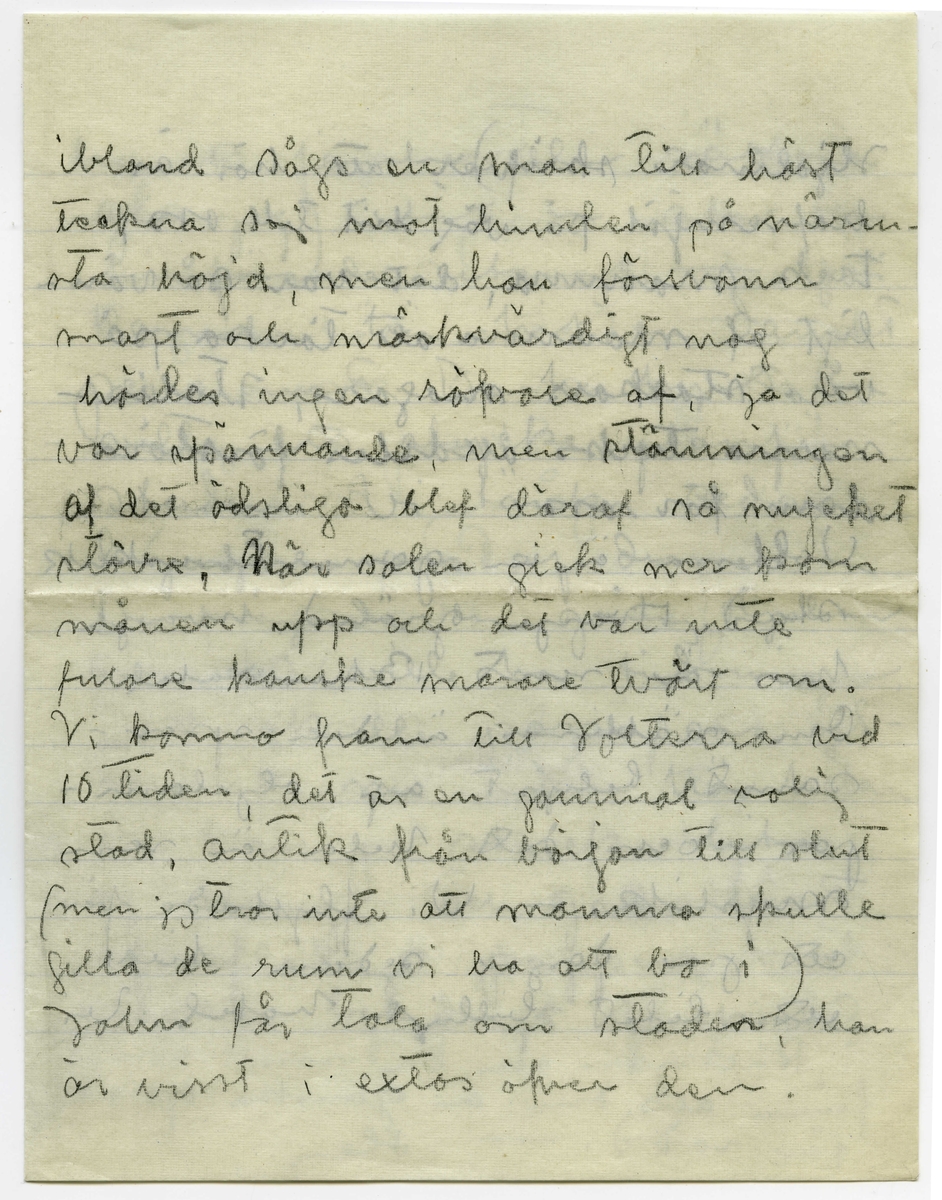 ibland sågs en man till häst
teckna sig mot himlen på närm-
sta höjd, men han försvann
snart och märkvärdigt nog
hördes ingen röfvare af, ja det
var spännande, men stämningen
af det ödsliga blef däraf så mycket
större, När solen gick ner kom
månen upp och det var inte
fulare kanske snarare tvärt om.
Vi kommo fram till Volterra vid
10 tiden, det är en gammal rolig
stad, antik från början till slut
(men jg tror inte att mamma skulle
gilla de rum vi ha att bo i)
John får tala om staden, han
är visst i extas öfver den.